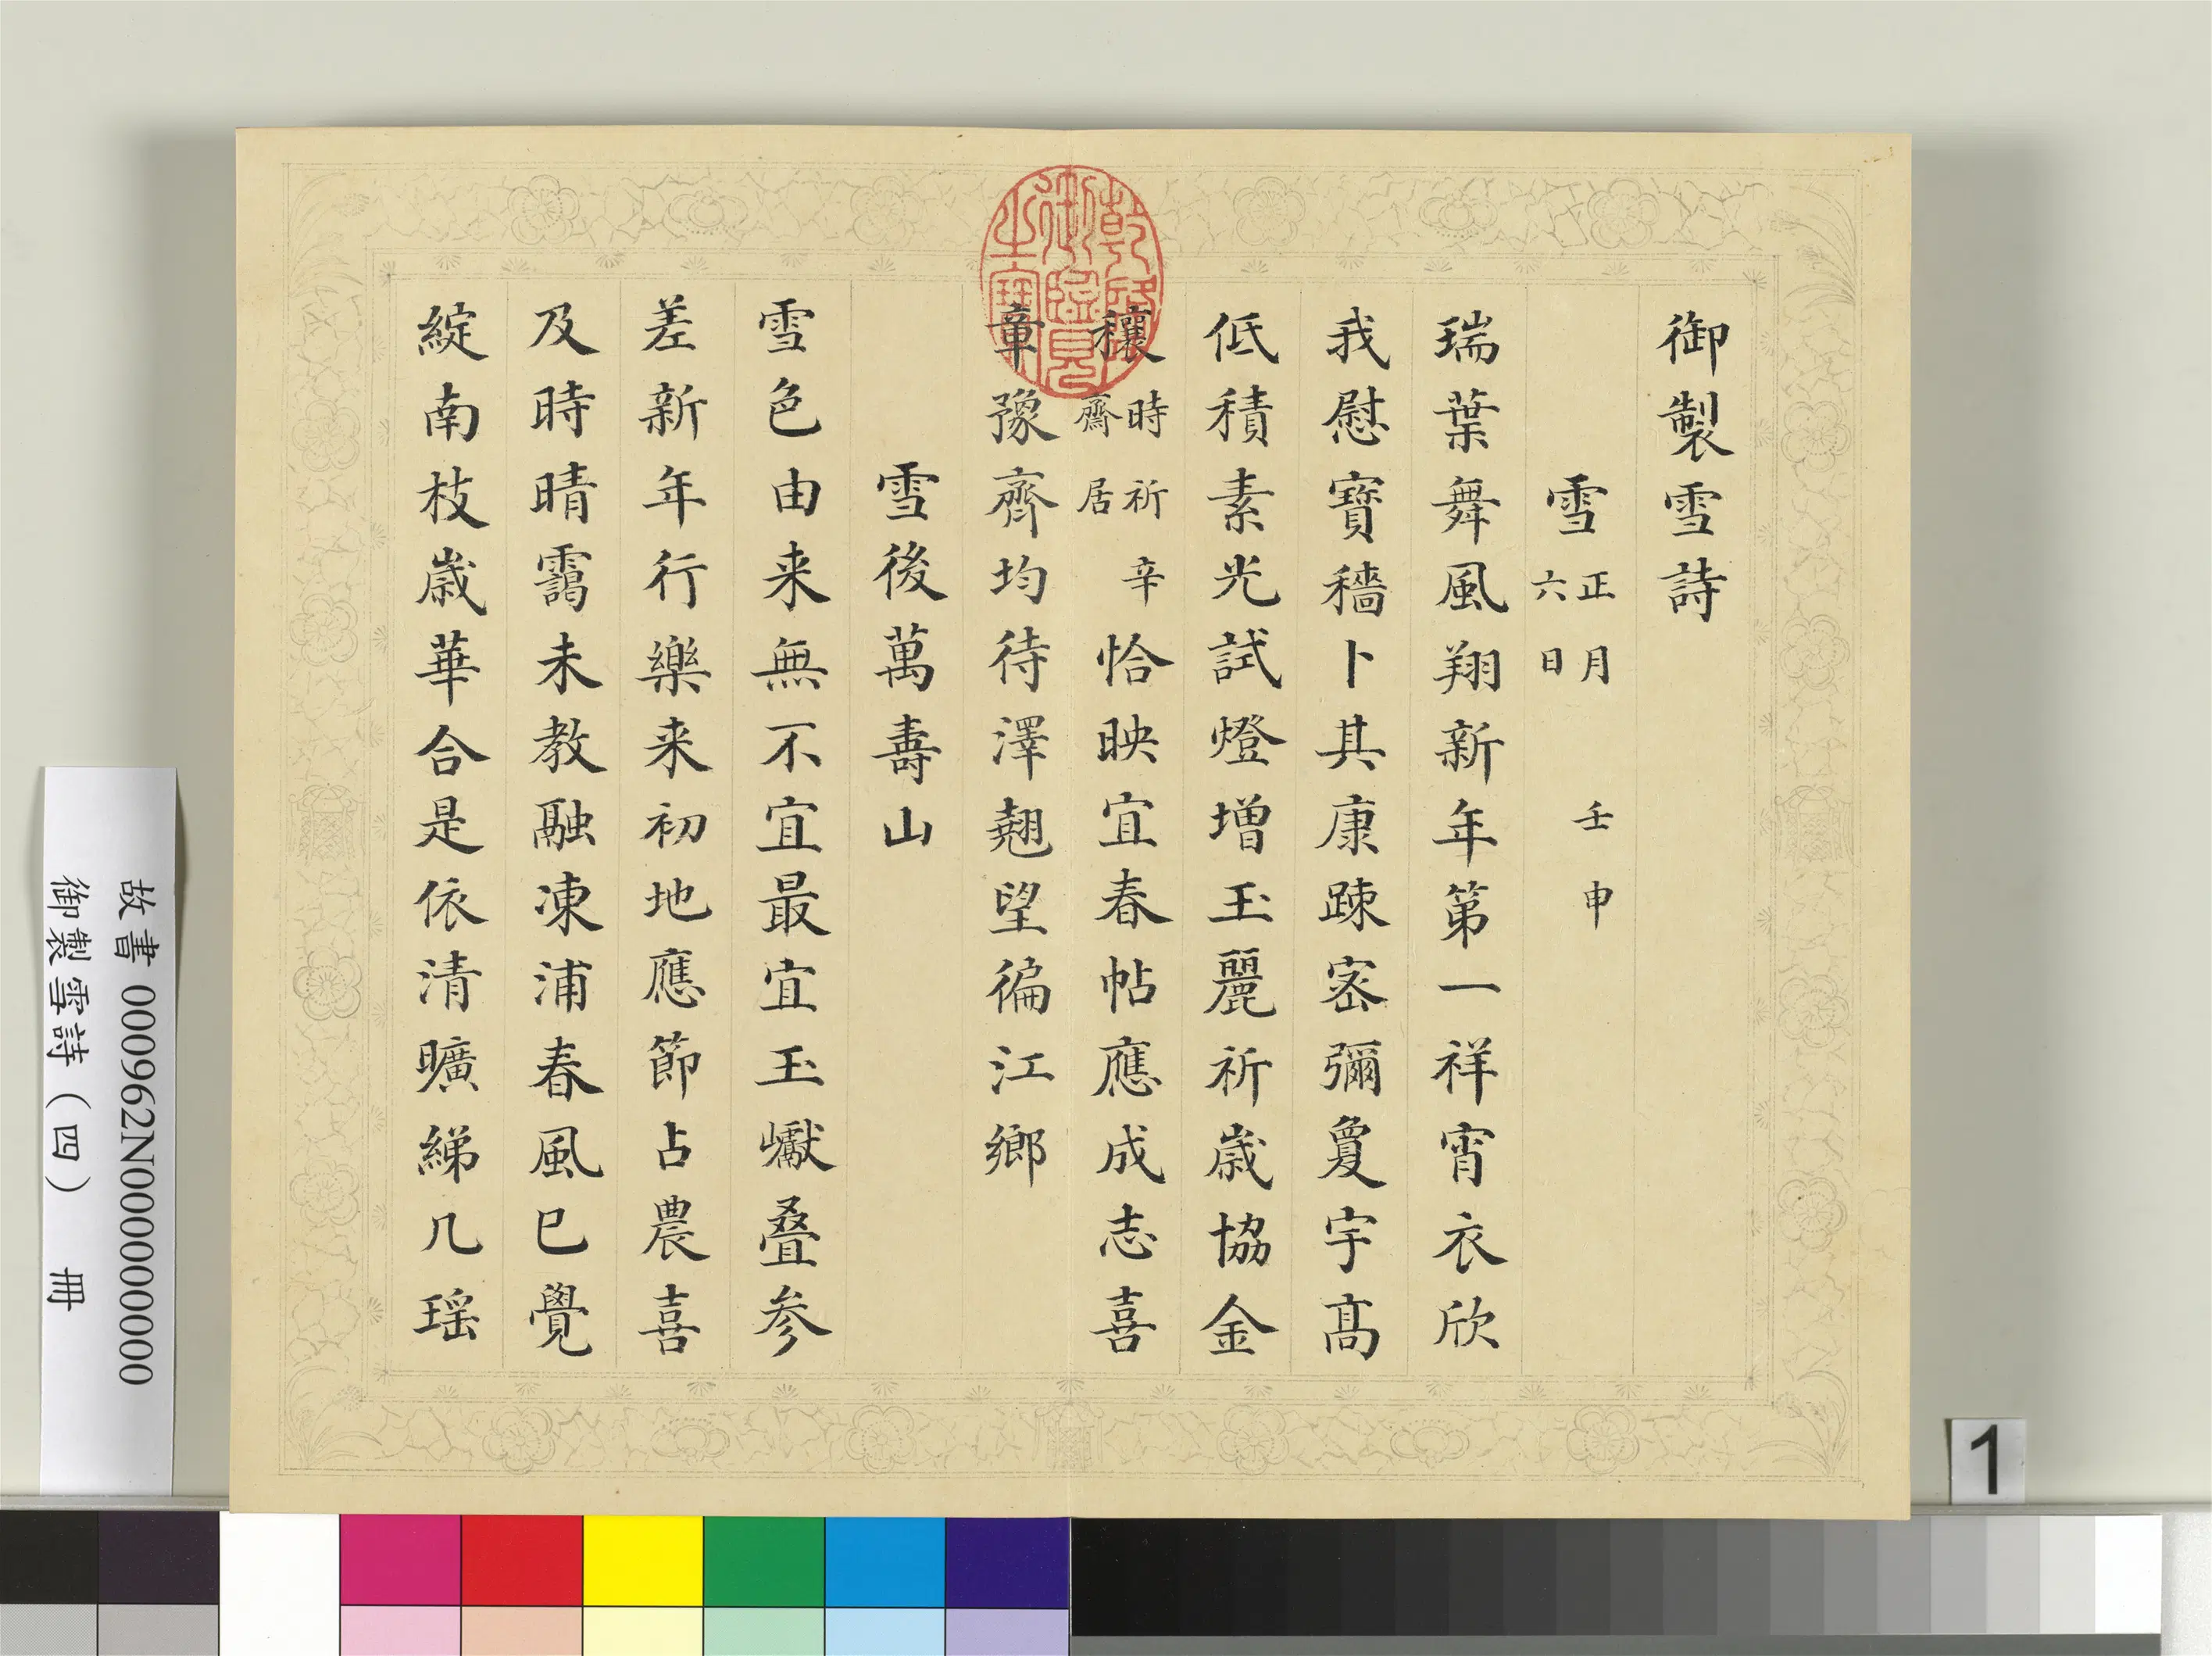 御製雪詩
雪 正月六日 壬申
瑞葉舞風翔新年第一祥宵衣欣
我慰寶穡卜其康踈宻彌夐宇髙
低積素光試燈增玉麗祈歲協金
穰 時祈辛齋居 恰映宜春帖應成志喜
章豫齊均待澤翹望徧江鄉
雪後萬壽山
雪色由来無不宜最宜玉巘叠参
差新年行樂来初地應節占農喜
及時晴靄未教融凍浦春風已覺
綻南枝歲華合是依清曠綈几瑶
乾隆御覽之寶
故書 000962N000000000
御製雪詩（四） 冊
1